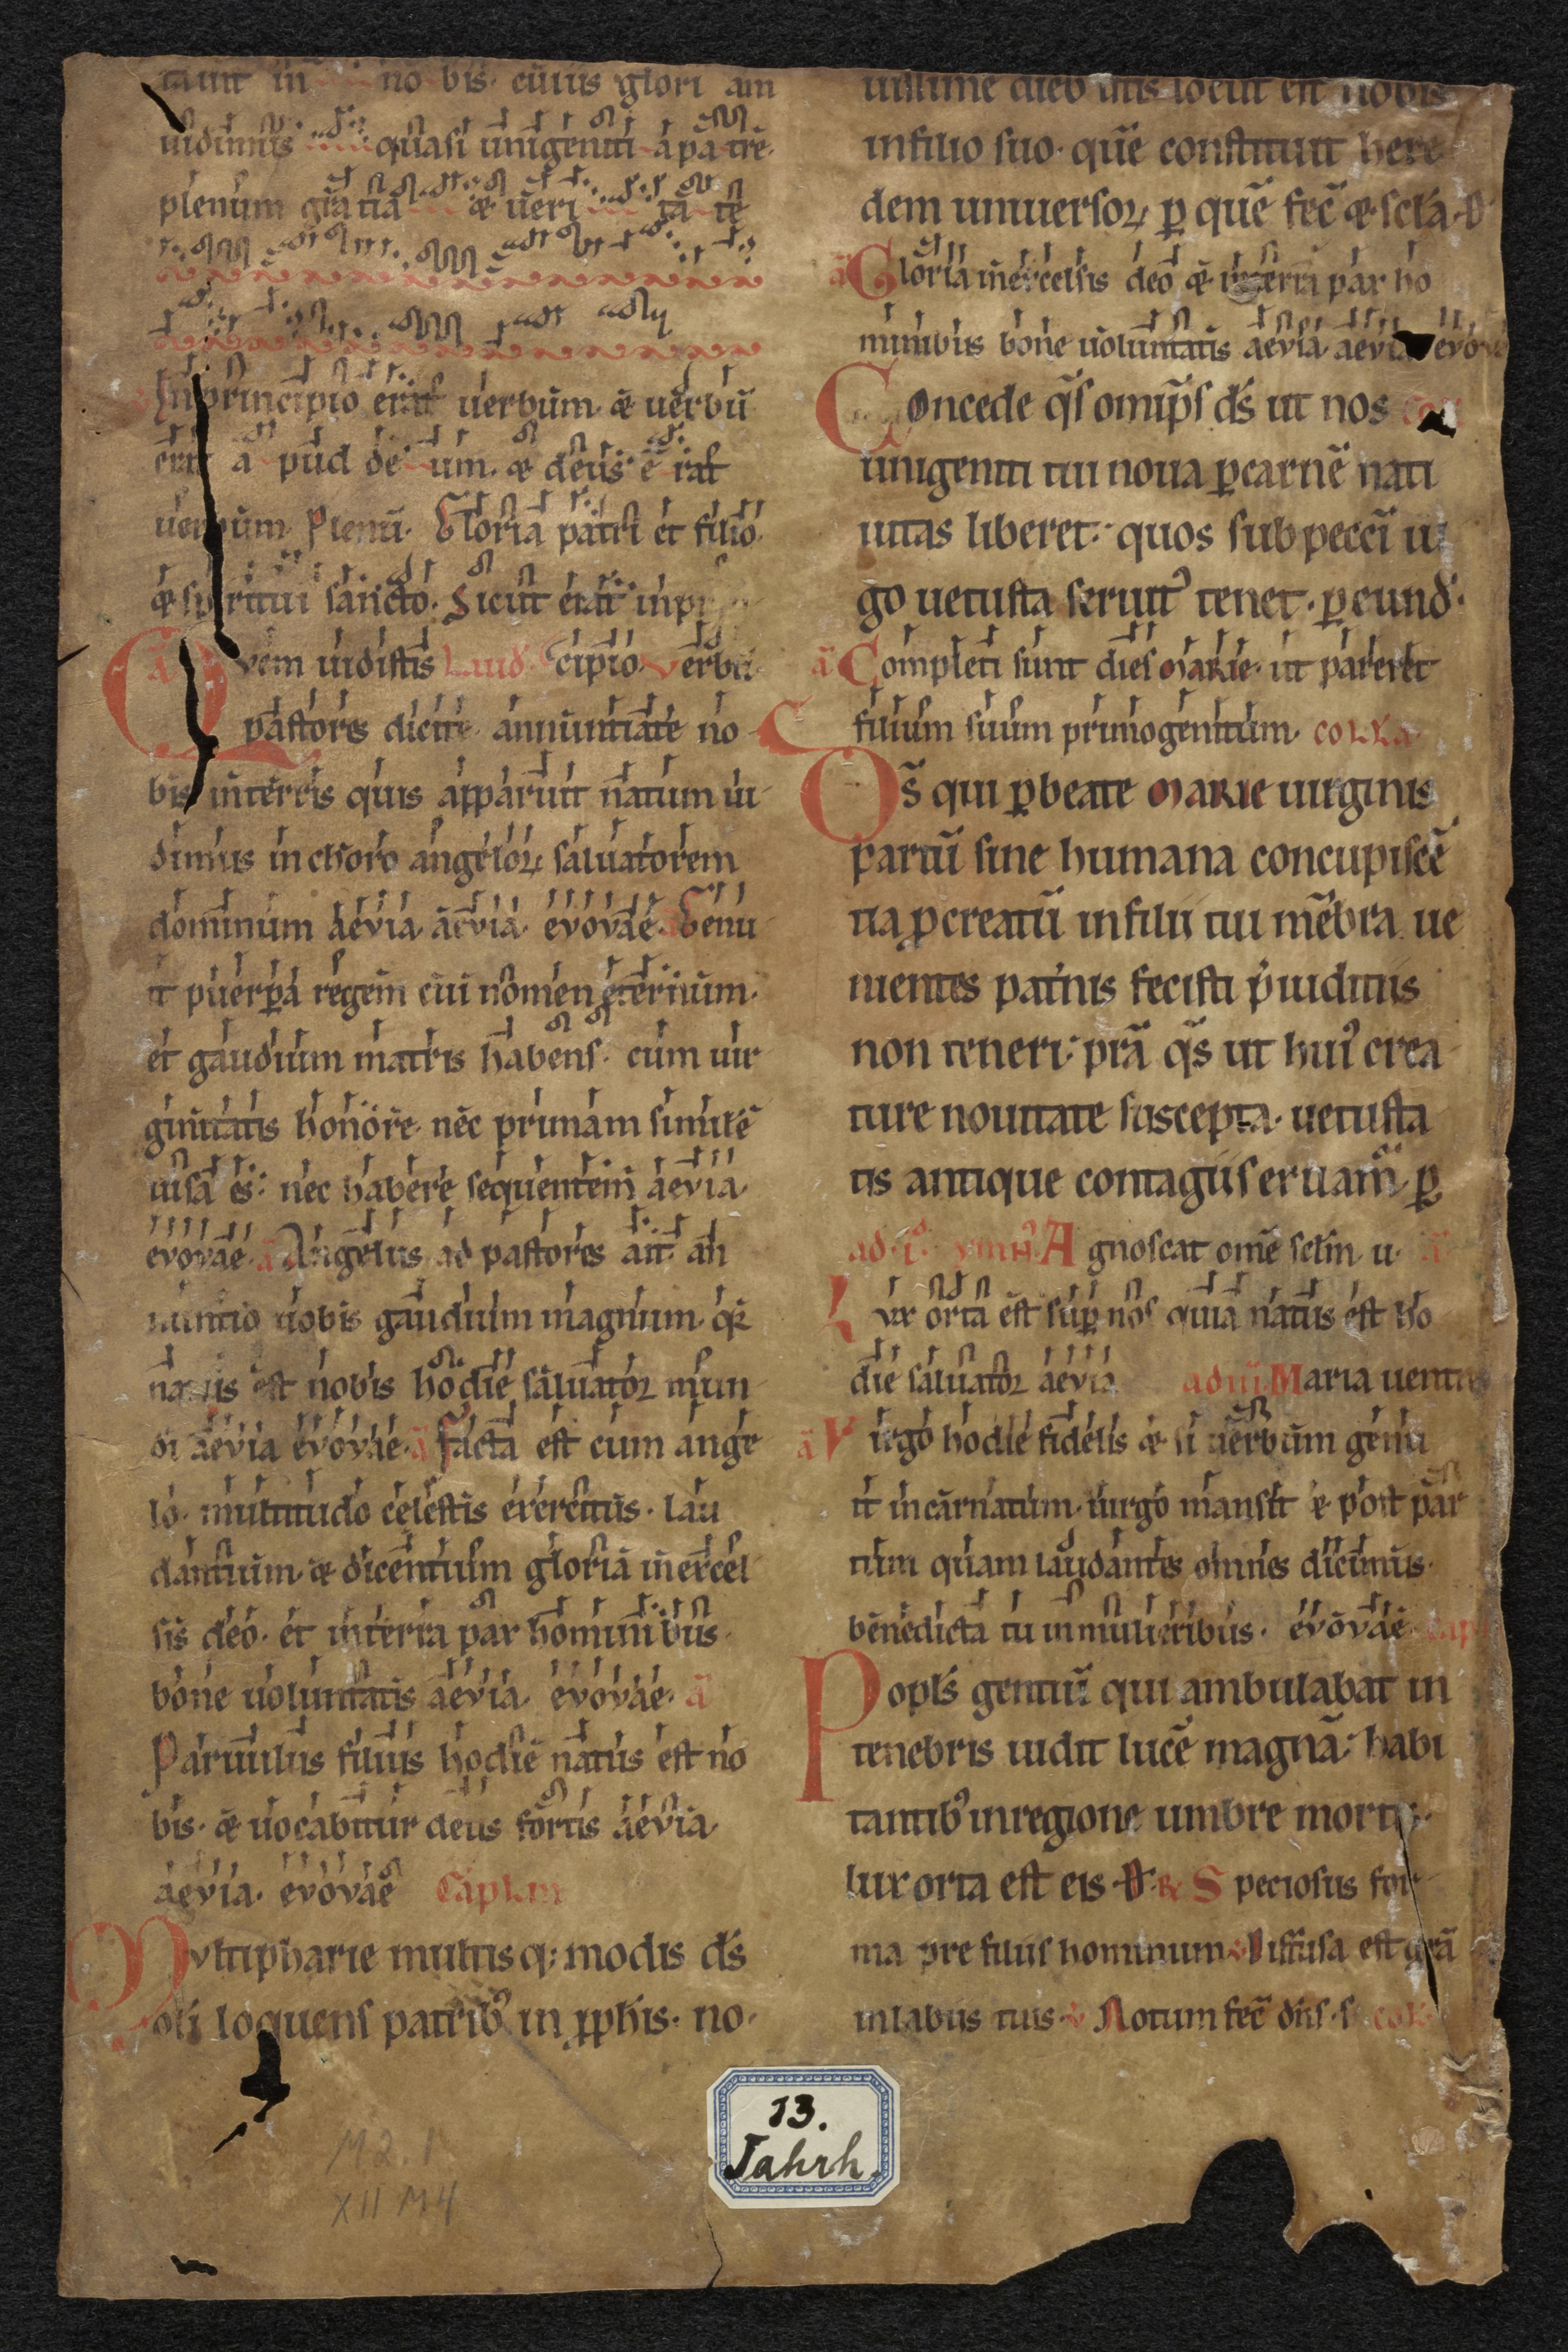 tauit in no bis. cuius glori am
uidimus quasi unigeniti a pa tre.
plenum gratia & ueri ta te
In principio erat uerbum. & uerbū
erat a pud de um. & deus e rat
uerbum. Plenū. Gloria patri et filio.
& spiritui sancto. Sicut erat inpr
Qvem uidistis Laud. cipio. verbū.
pastores dicite. annuntiate no
bis interris quis apparuit natum ui
dimus in choro angeloꝝ saluatorem
dominum aevia aevia. evovae. Genu
it puerpa regem cui nomen eternum.
et gaudium matris habens. cum uir
ginitatis honore. nec primam similē
uisa es: nec habere sequentem aevia.
evovae. a Angelus ad pastores ait. an
nuntio uobis gaudium magnum. qꝛ
natus est nobis hodie saluatoꝛ mun
di aevia evovae. a facta est cum ange
lo. multitudo celestis exercitus. lau
dantium. & dicentium gloria inexcel
sis deo. et interra pax hominibus.
bone uoluntatis aevia. evovae. a
Paruulus filius hodie natus est no
bis. & uocabitur deus fortis aevia.
aevia. evovae Caplm
Mvltipharie multisq; modis ds
oli loquens patrib' in ꝓphis. no.
uissime dieb istis locut est nobis
infilio suo. quē constituit here
dem uniuersoꝝ ꝑ quē fec̄ & scla. D
a Gloria inexcelsis deo & interra pax ho
minibus bone uoluntatis aevia. aevia evov
Concede qs omips ds ut nos
unigeniti tui noua ꝑcarnē nati
uitas liberet. quos subpecci iu
go uetusta seruit' tenet. ꝑeund.
a Completi sunt dies Marie. ut pareret
filium suum primogenitum. coLLa
Ds qui ꝑbeate Marie uirginis
partū sine humana concupiscē
tia ꝓcreatū infilii tui mēbra ue
nientes pat'nis fecisti p̄iudiciis
non teneri. prā qs ut hui' crea
ture nouitate suscepta. uetusta
tis antique contagiis eruam'. ꝑ
ad .i. ymn' Agnoscat omē sclm. u. a
Lvx orta est suꝑ nos quia natus est ho
die saluatoꝛ aevia ad iii. Maria uentre
a Virgo hodie fidelis & si uerbum genu
it incarnatum. uirgo mansit & post par
tum quam laudantes omnes dicimus.
benedicta tu inmulieribus. evovae. Cap
Popls gentiū qui ambulabat in
tenebris uidit lucē magnā. habi
tantib' inregione umbre mortis.
lux orta est eis. D. R Speciosus for
ma pre filiis hominum. v Diffusa est gra
inlabiis tuis. v Notum fec̄ dns. s coll
13.
Jahrh.
M2.1
XII M4